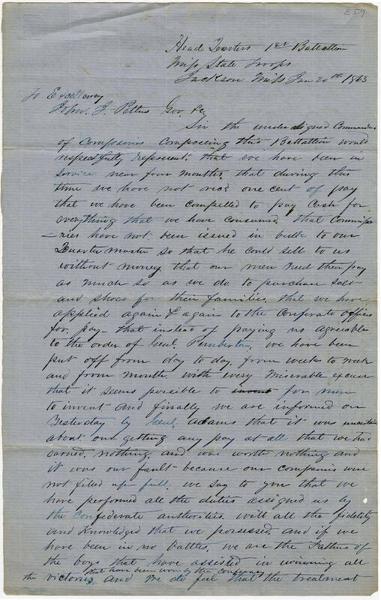 Head Quarters 1st Battalion
Miss State Troops
Jackson Miss Jan 20th 1863
To Excellency
John J. Pettus Gov &c
Sir the undersigned Commanders
of Companies Composeing this Battalion would
respectfully represent that we have been in
service near four months, that during this
time we have not recd one cent of pay
that we have been Compelled to pay Cash for
everything that we have Consumed that Commissa-
ries have not been issued in bulk to our
Quarter Master so that he could sell to us
without money that our men need their pay
as much so as we do to purchase salt
and shoes for their families, that we have
applied again & again to the Confederate officers
for pay that instead of paying us agreeable
to the order of Genl Pemberton, we have been
put off from day to day, from week to week
and from month with every miserable excuse
that it seems possible to for men
to invent and finally we are informed on
yesterday by Genl Adams that it was uncertain
about our getting any pay at all that we had
earned nothing and was worth nothing and
it was our fault because our companies were
not filed up full, we say to you that we
have performed all the duties assigned us by
the Confederate authorities with all the fidelity
and Knowledged that we possessed and if we
have been in no Battles, we are the Fathers of
the boys that have assisted in winning all
the victories that have been won by the Confederacy and we do feel that the treatment